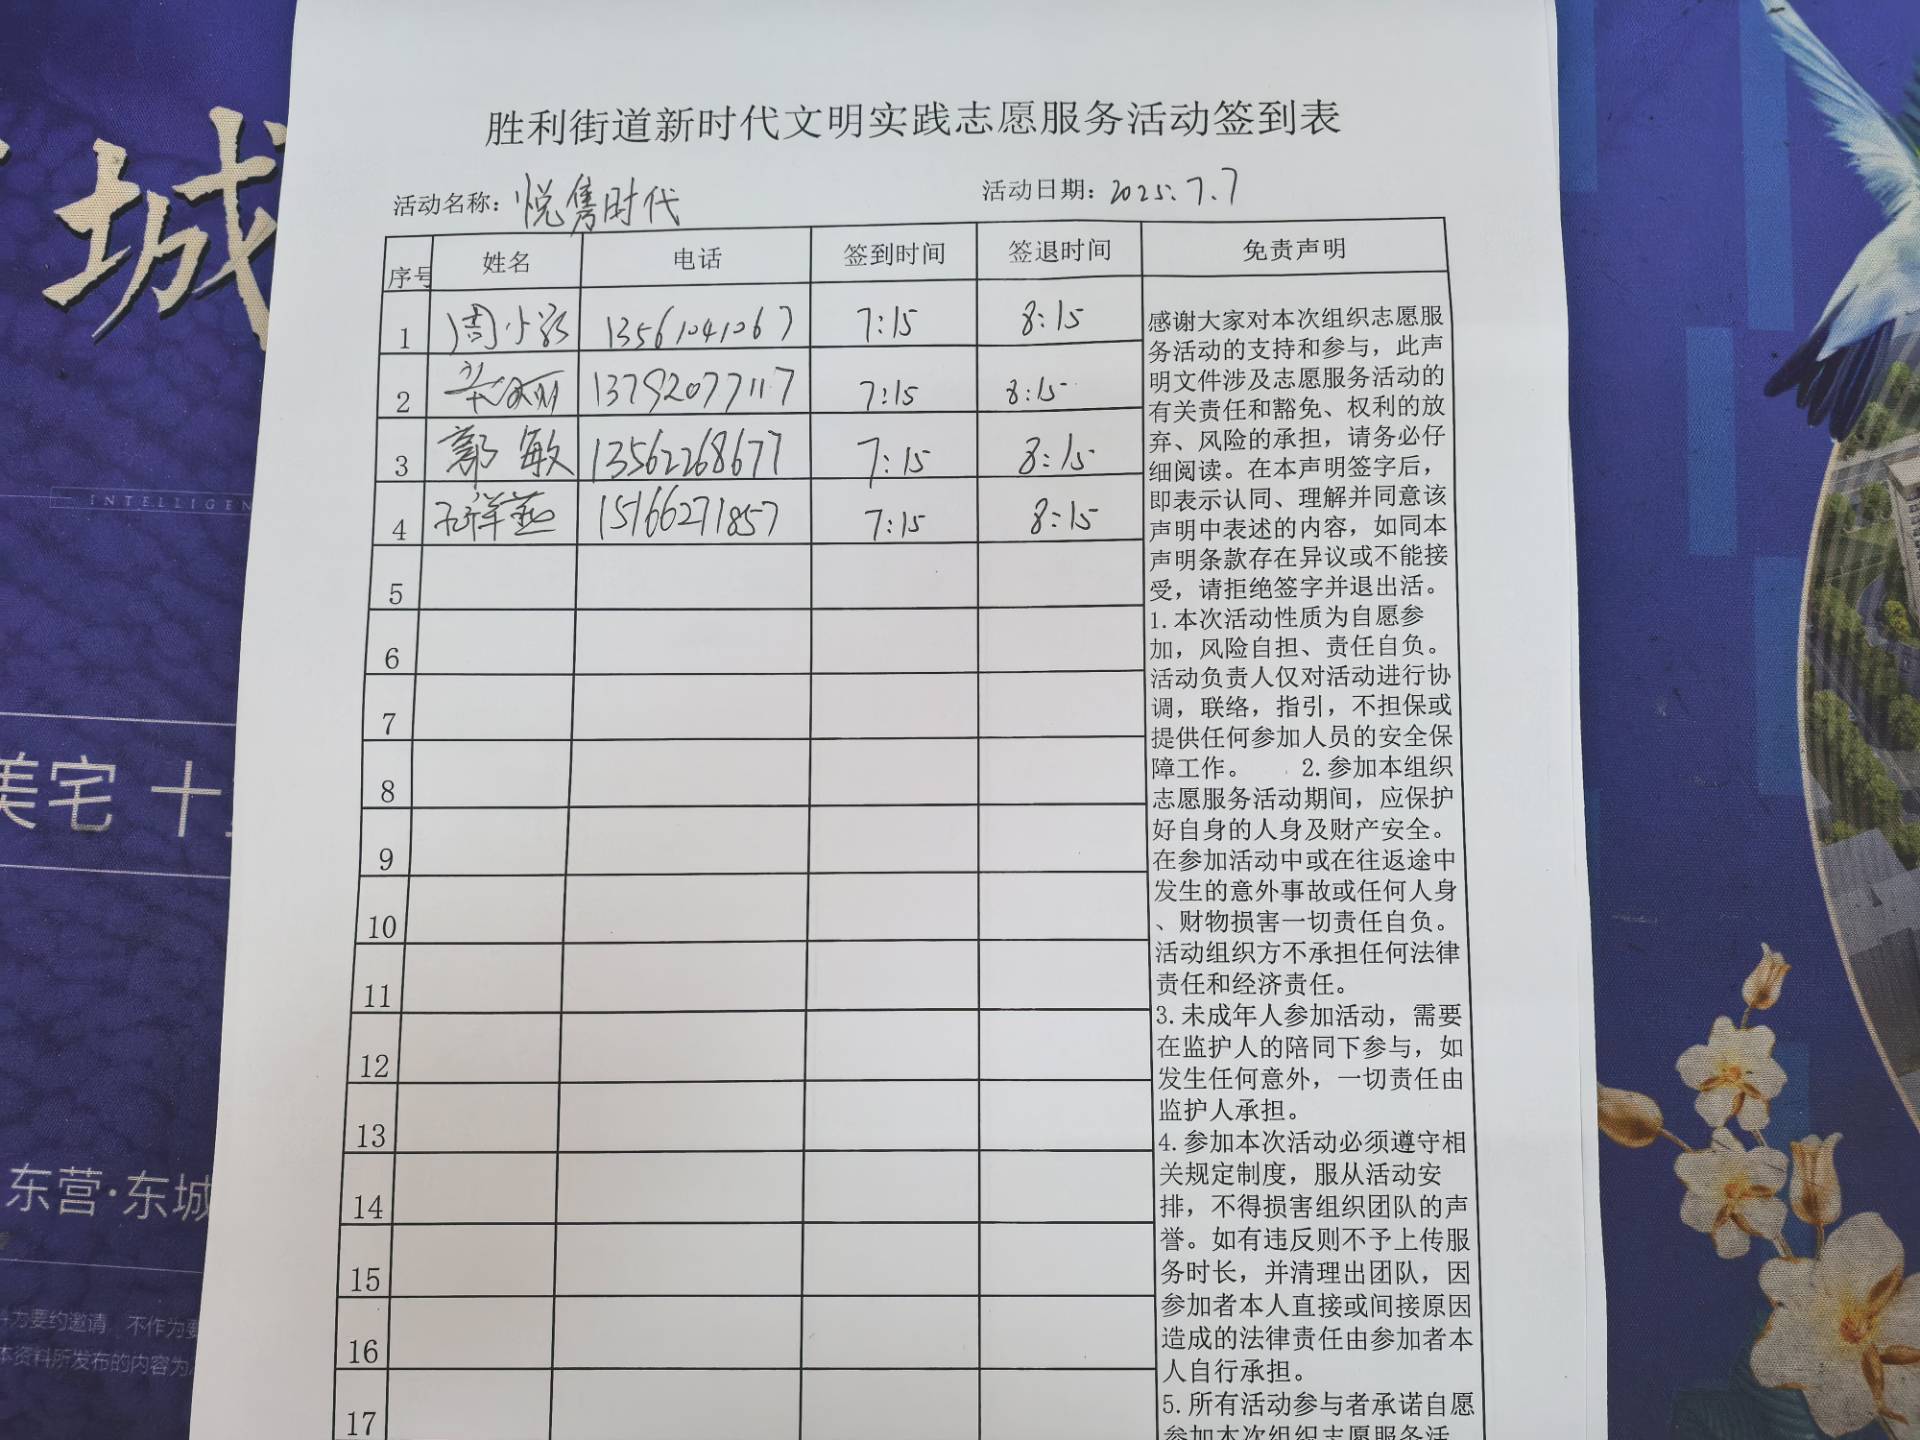 胜利街道新时代文明实践志愿服务活动签到表
活动名称：悦隽时代 活动日期：2025.7.7
序号 姓名 电话 签到时间 签退时间 免责声明
1 周小 13561041067 7:15 8:15
2 13792077117 7:15 8:15
3 郭敏 13562268677 7:15 8:15
4 祥燕 15166271857 7:15 8:15
5
6
7
8
9
10
11
12
13
14
15
16
17
感谢大家对本次组织志愿服
务活动的支持和参与，此声
明文件涉及志愿服务活动的
有关责任和豁免、权利的放
弃、风险的承担，请务必仔
细阅读。在本声明签字后，
即表示认同、理解并同意该
声明中表述的内容，如同本
声明条款存在异议或不能接
受，请拒绝签字并退出活。
1.本次活动性质为自愿参
加，风险自担、责任自负。
活动负责人仅对活动进行协
调，联络，指引，不担保或
提供任何参加人员的安全保
障工作。 2.参加本组织
志愿服务活动期间，应保护
好自身的人身及财产安全。
在参加活动中或在往返途中
发生的意外事故或任何人身
、财物损害一切责任自负。
活动组织方不承担任何法律
责任和经济责任。
3.未成年人参加活动，需要
在监护人的陪同下参与，如
发生任何意外，一切责任由
监护人承担。
4.参加本次活动必须遵守相
关规定制度，服从活动安
排，不得损害组织团队的声
誉。如有违反则不予上传服
务时长，并清理出团队，因
参加者本人直接或间接原因
造成的法律责任由参加者本
人自行承担。
5.所有活动参与者承诺自愿
参加本次组织志愿服务活
城
INTELLIGEN
美宅 十
东营·东城
为要约邀请，不作为要
本资料所发布的内容为